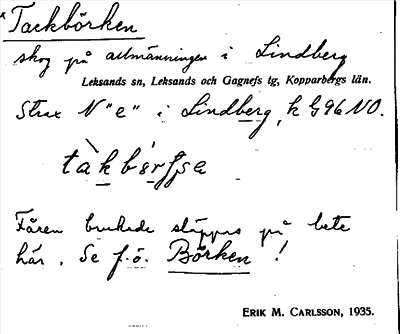 Tackbörken
skog på allmänningen i Lindberg
Leksands sn, Leksands och Gagnefs tg, Kopparbergs län.
Strax N "e" i Lindberg, k G96 NO.
Fåren brukade släppas på bete
här. Se f.ö. Börken!
ERIK M. CARLSSON, 1935.